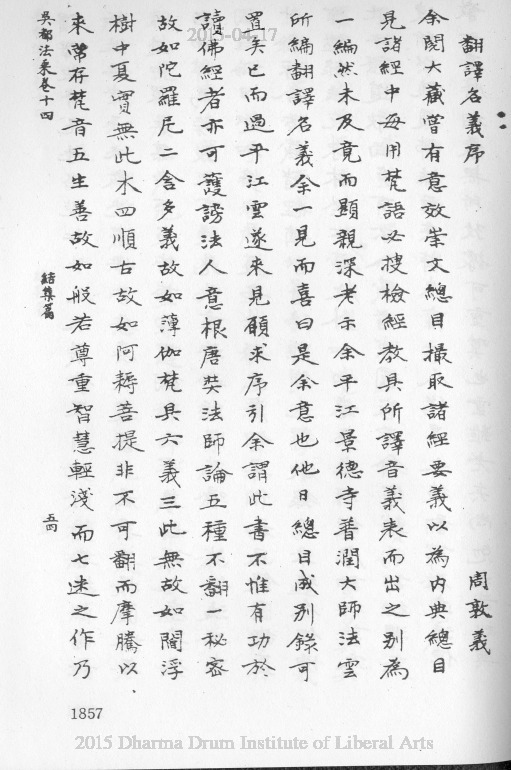 翻譯名義序
周敦義
余閱大藏嘗有意效崇文總目撮取諸經要義以為內典總目
見諸經中每用梵語必搜檢經教具所譯音義表而出之別為
一編然未及竟而顯親深老示余平江景德寺普潤大師法雲
所編翻譯名義余一見而喜曰是余意也他日總目成別錄可
置矣已而過平江雲遂來見願求序引余謂此書不惟有功於
讀佛經者亦可護謗法人意根唐奘法師論五種不翻一秘密
故如陀羅尼二含多義故如薄伽梵具六義三此無故如閻浮
樹中夏實無此木四順古故如阿耨菩提非不可翻而摩騰以
來常存梵音五生善故如般若尊重智慧輕淺而七迷之作乃
吳都法乘卷十四
結集篇
五四
1857
2015-04-17
2015 Dharma Drum Institute of Liberal Arts